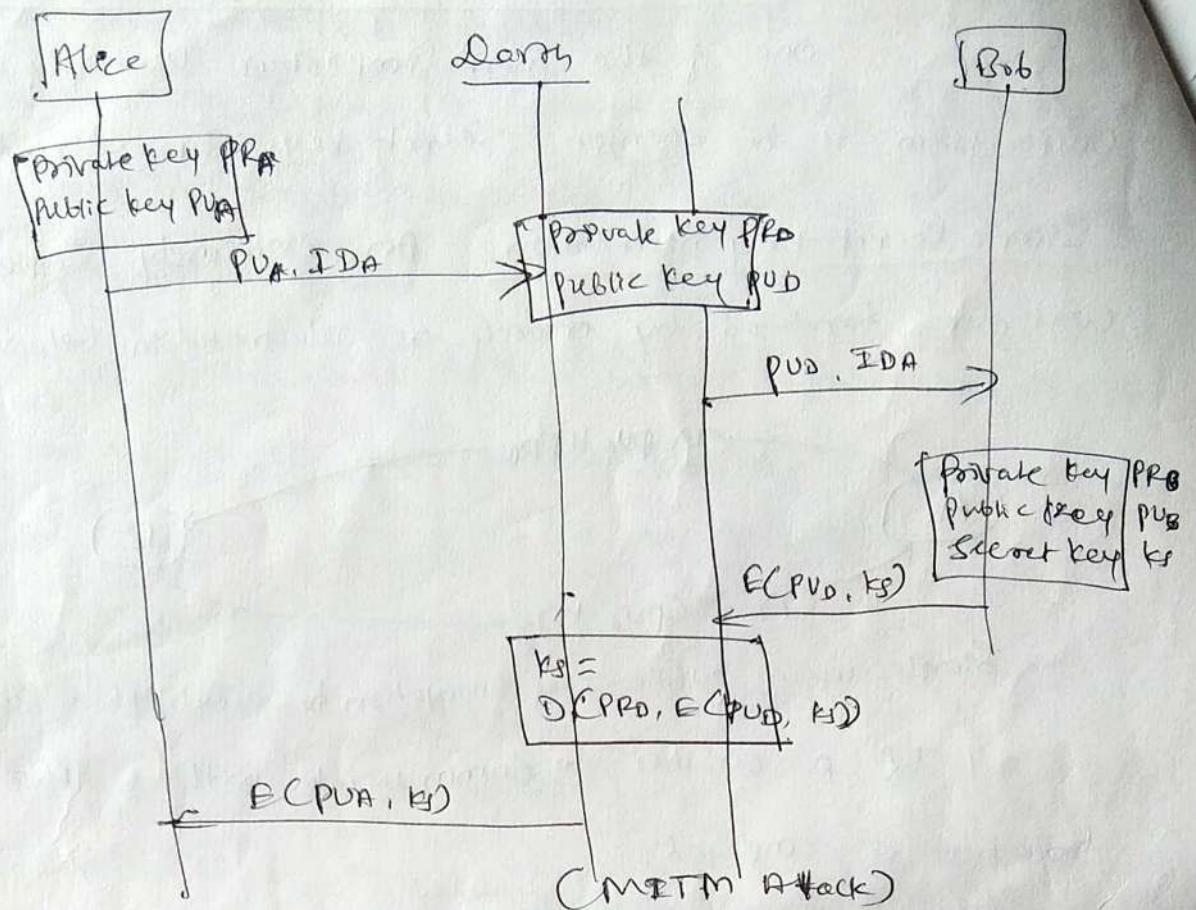 Alice
Darth
Bob
private key PRA
Public key PUA
PUA, IDA
private key PRD
public key PUD
PUD, IDA
Private key PRB
Public key PUB
Secret key ks
E(PUD, ks)
ks =
D(PRD, E(PUD, ks))
E(PUA, ks)
(MITM Attack)